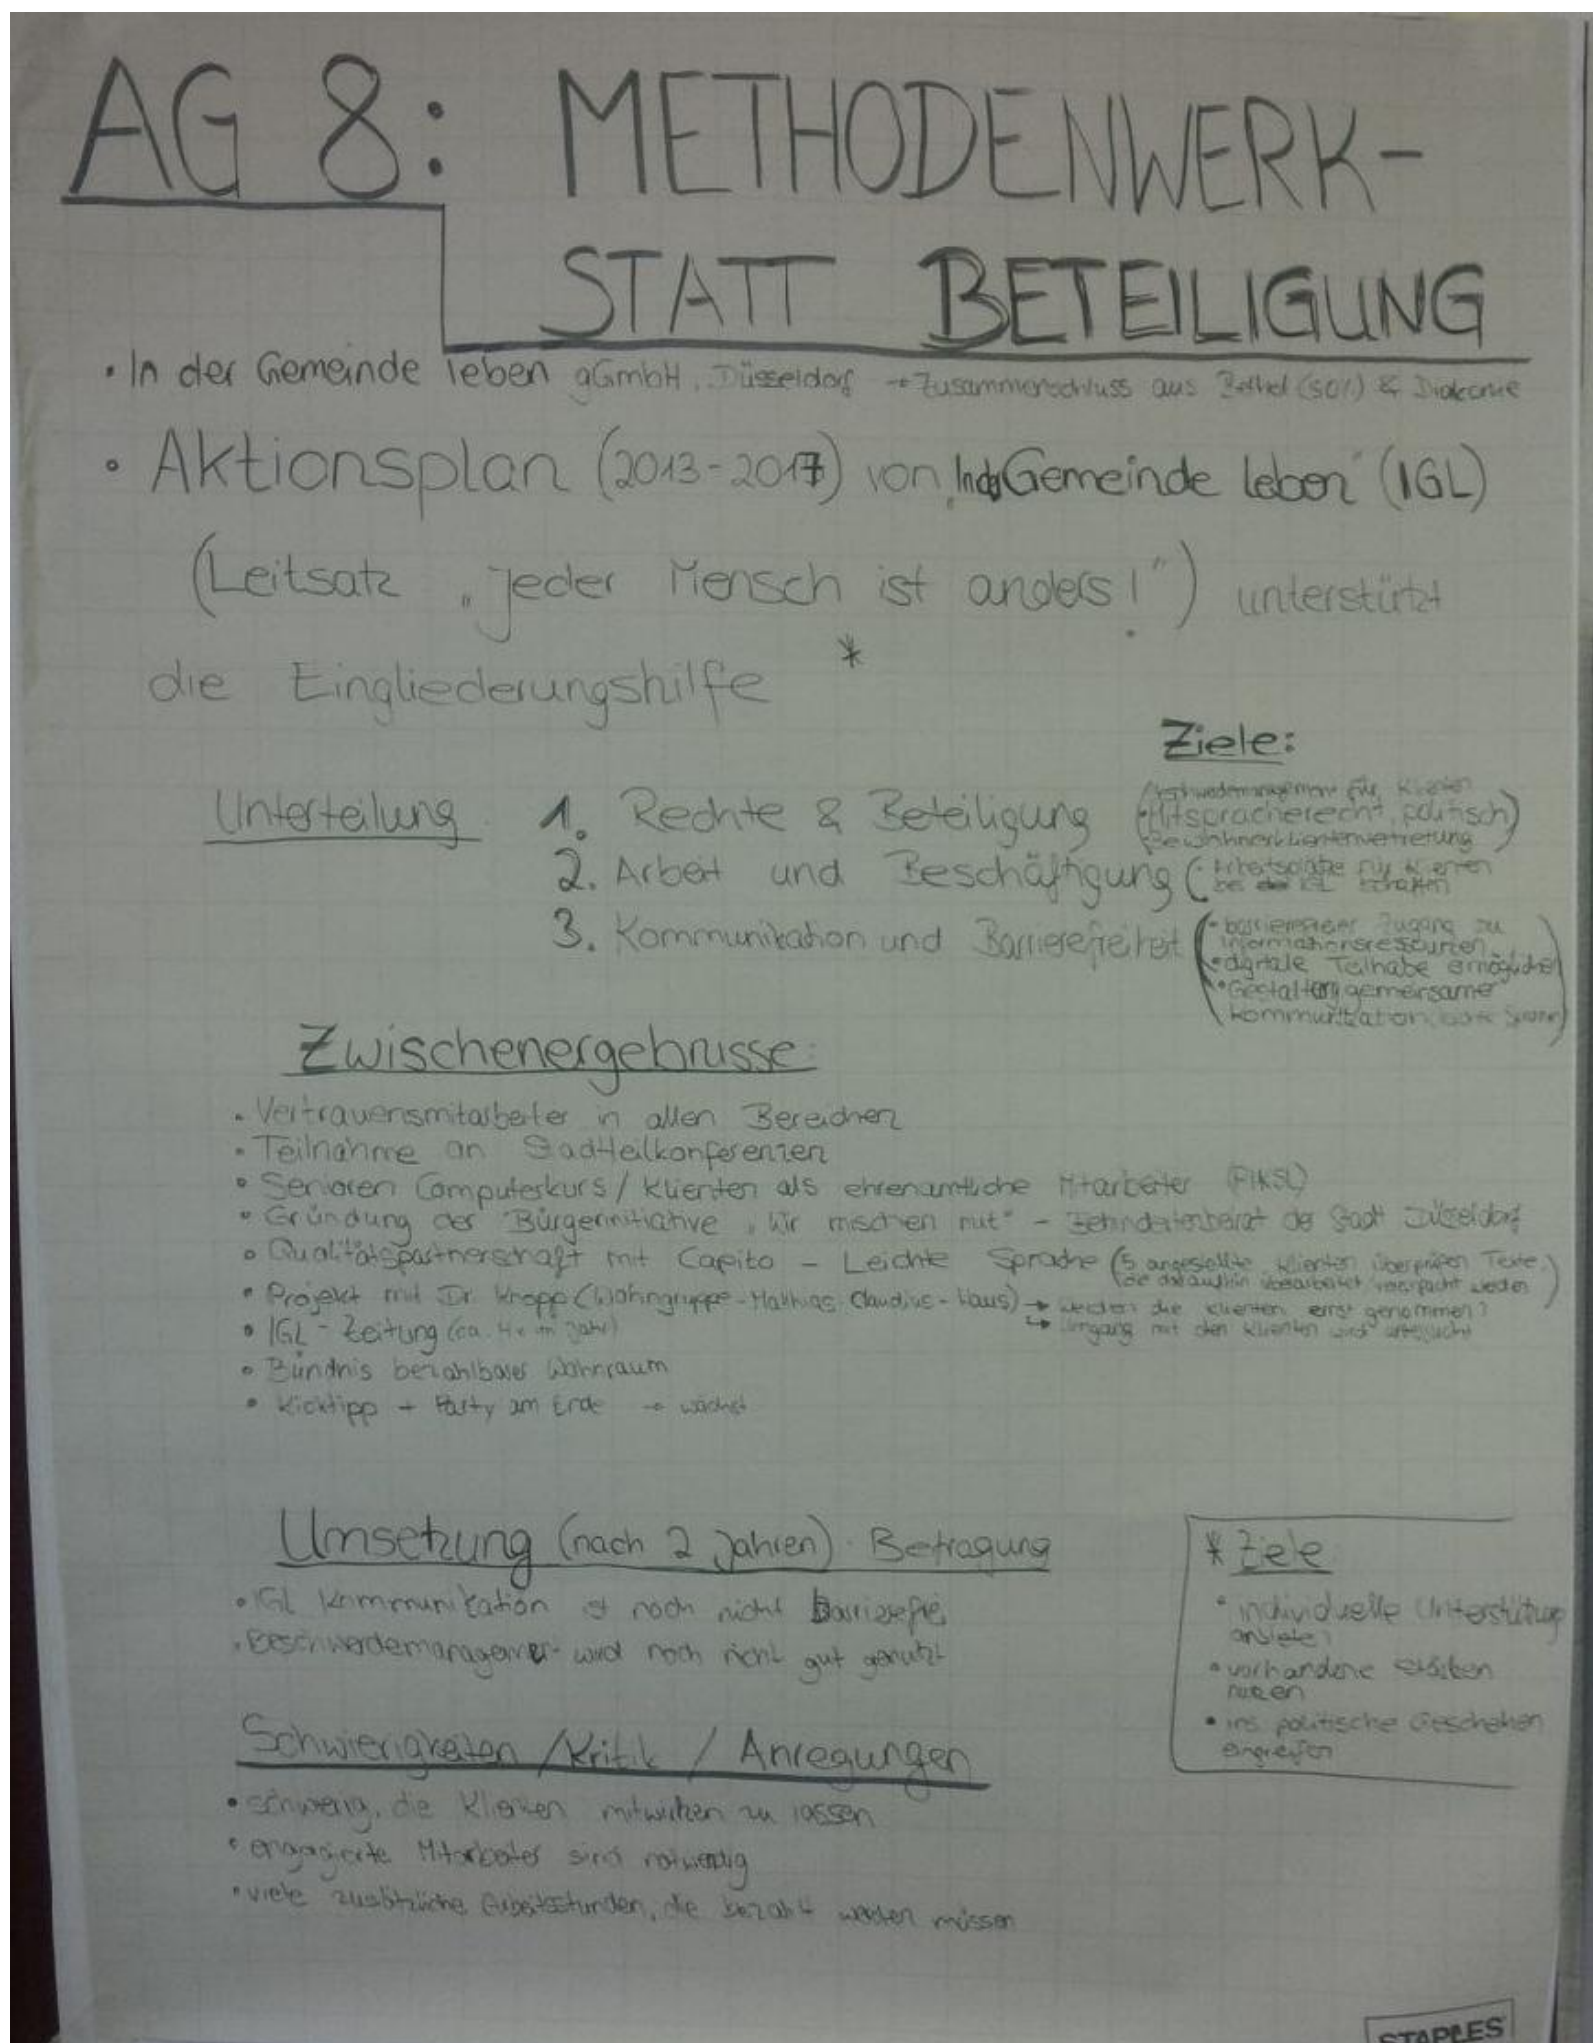 AG 8: METHODENWERK-
STATT BETEILIGUNG
• In der Gemeinde leben gGmbH, Düsseldorf → Zusammenschluss aus Bethel (50%) & Diakonie
• Aktionsplan (2013-2017) von „In der Gemeinde leben" (IGL)
(Leitsatz „jeder Mensch ist anders!") unterstützt
die Eingliederungshilfe *
Ziele:
Unterteilung 1. Rechte & Beteiligung
(Beschwerdemanagement für Klienten
• Mitspracherecht, politisch)
Bewohner/Klientenvertretung
2. Arbeit und Beschäftigung
(• Arbeitsplätze für Klienten
bei IGL schaffen
3. Kommunikation und Barrierefreiheit
(• barrierefreier Zugang zu
Informationsressourcen
• digitale Teilhabe ermöglichen
• Gestaltung gemeinsamer
Kommunikation,
Zwischenergebnisse:
• Vertrauensmitarbeiter in allen Bereichen
• Teilnahme an Stadtteilkonferenzen
• Senioren Computerkurs / Klienten als ehrenamtliche Mitarbeiter (PIKSL)
• Gründung der Bürgerinitiative „Wir mischen mit" - Behindertenbeirat der Stadt Düsseldorf
• Qualitätspartnerschaft mit Capito - Leichte Sprache (5 angestellte Klienten überprüfen Texte,
die daraufhin überarbeitet werden)
• Projekt mit Dr. Knopp (Wohngruppe-Mathias-Claudius-Haus) → werden die Klienten ernst genommen?
↳ Umgang mit den Klienten wird untersucht
• IGL - Zeitung (ca. 4x im Jahr)
• Bündnis bezahlbarer Wohnraum
• Kicktipp + Party am Ende → wächst
Umsetzung (nach 2 Jahren) Befragung
• IGL Kommunikation ist noch nicht Barrierefrei
• Beschwerdemanagement wird noch nicht gut genutzt
* Ziele
• individuelle Unterstützung
anbieten
• vorhandene Stärken
nutzen
• ins politische Geschehen
eingreifen
Schwierigkeiten / Kritik / Anregungen
• schwierig, die Klienten mitwirken zu lassen
• engagierte Mitarbeiter sind notwendig
• viele zusätzliche Arbeitsstunden, die bezahlt werden müssen
STAPLES